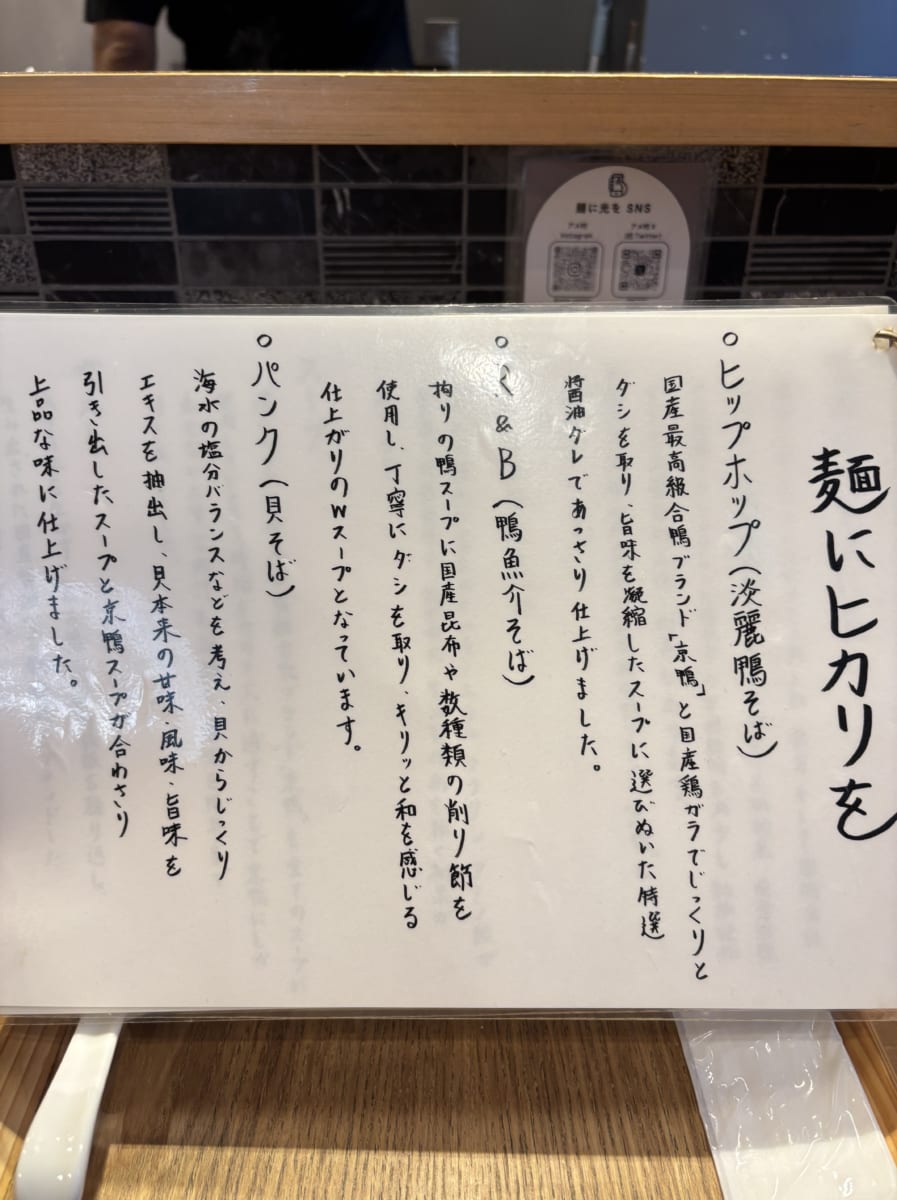 麺に光を SNS
麺にヒカリを
○ヒップホップ(淡麗鴨そば)
国産最高級合鴨ブランド「京鴨」と国産鶏ガラでじっくりと
ダシを取り、旨味を凝縮したスープに選びぬいた特選
醤油ダレであっさり仕上げました。
○R&B(鴨魚介そば)
拘りの鴨スープに国産昆布や数種類の削り節を
使用し、丁寧にダシを取り、キリッと和を感じる
仕上がりのWスープとなっています。
○パンク(貝そば)
海水の塩分バランスなどを考え、貝からじっくり
エキスを抽出し、貝本来の甘味・風味・旨味を
引き出したスープと京鴨スープが合わさり
上品な味に仕上げました。